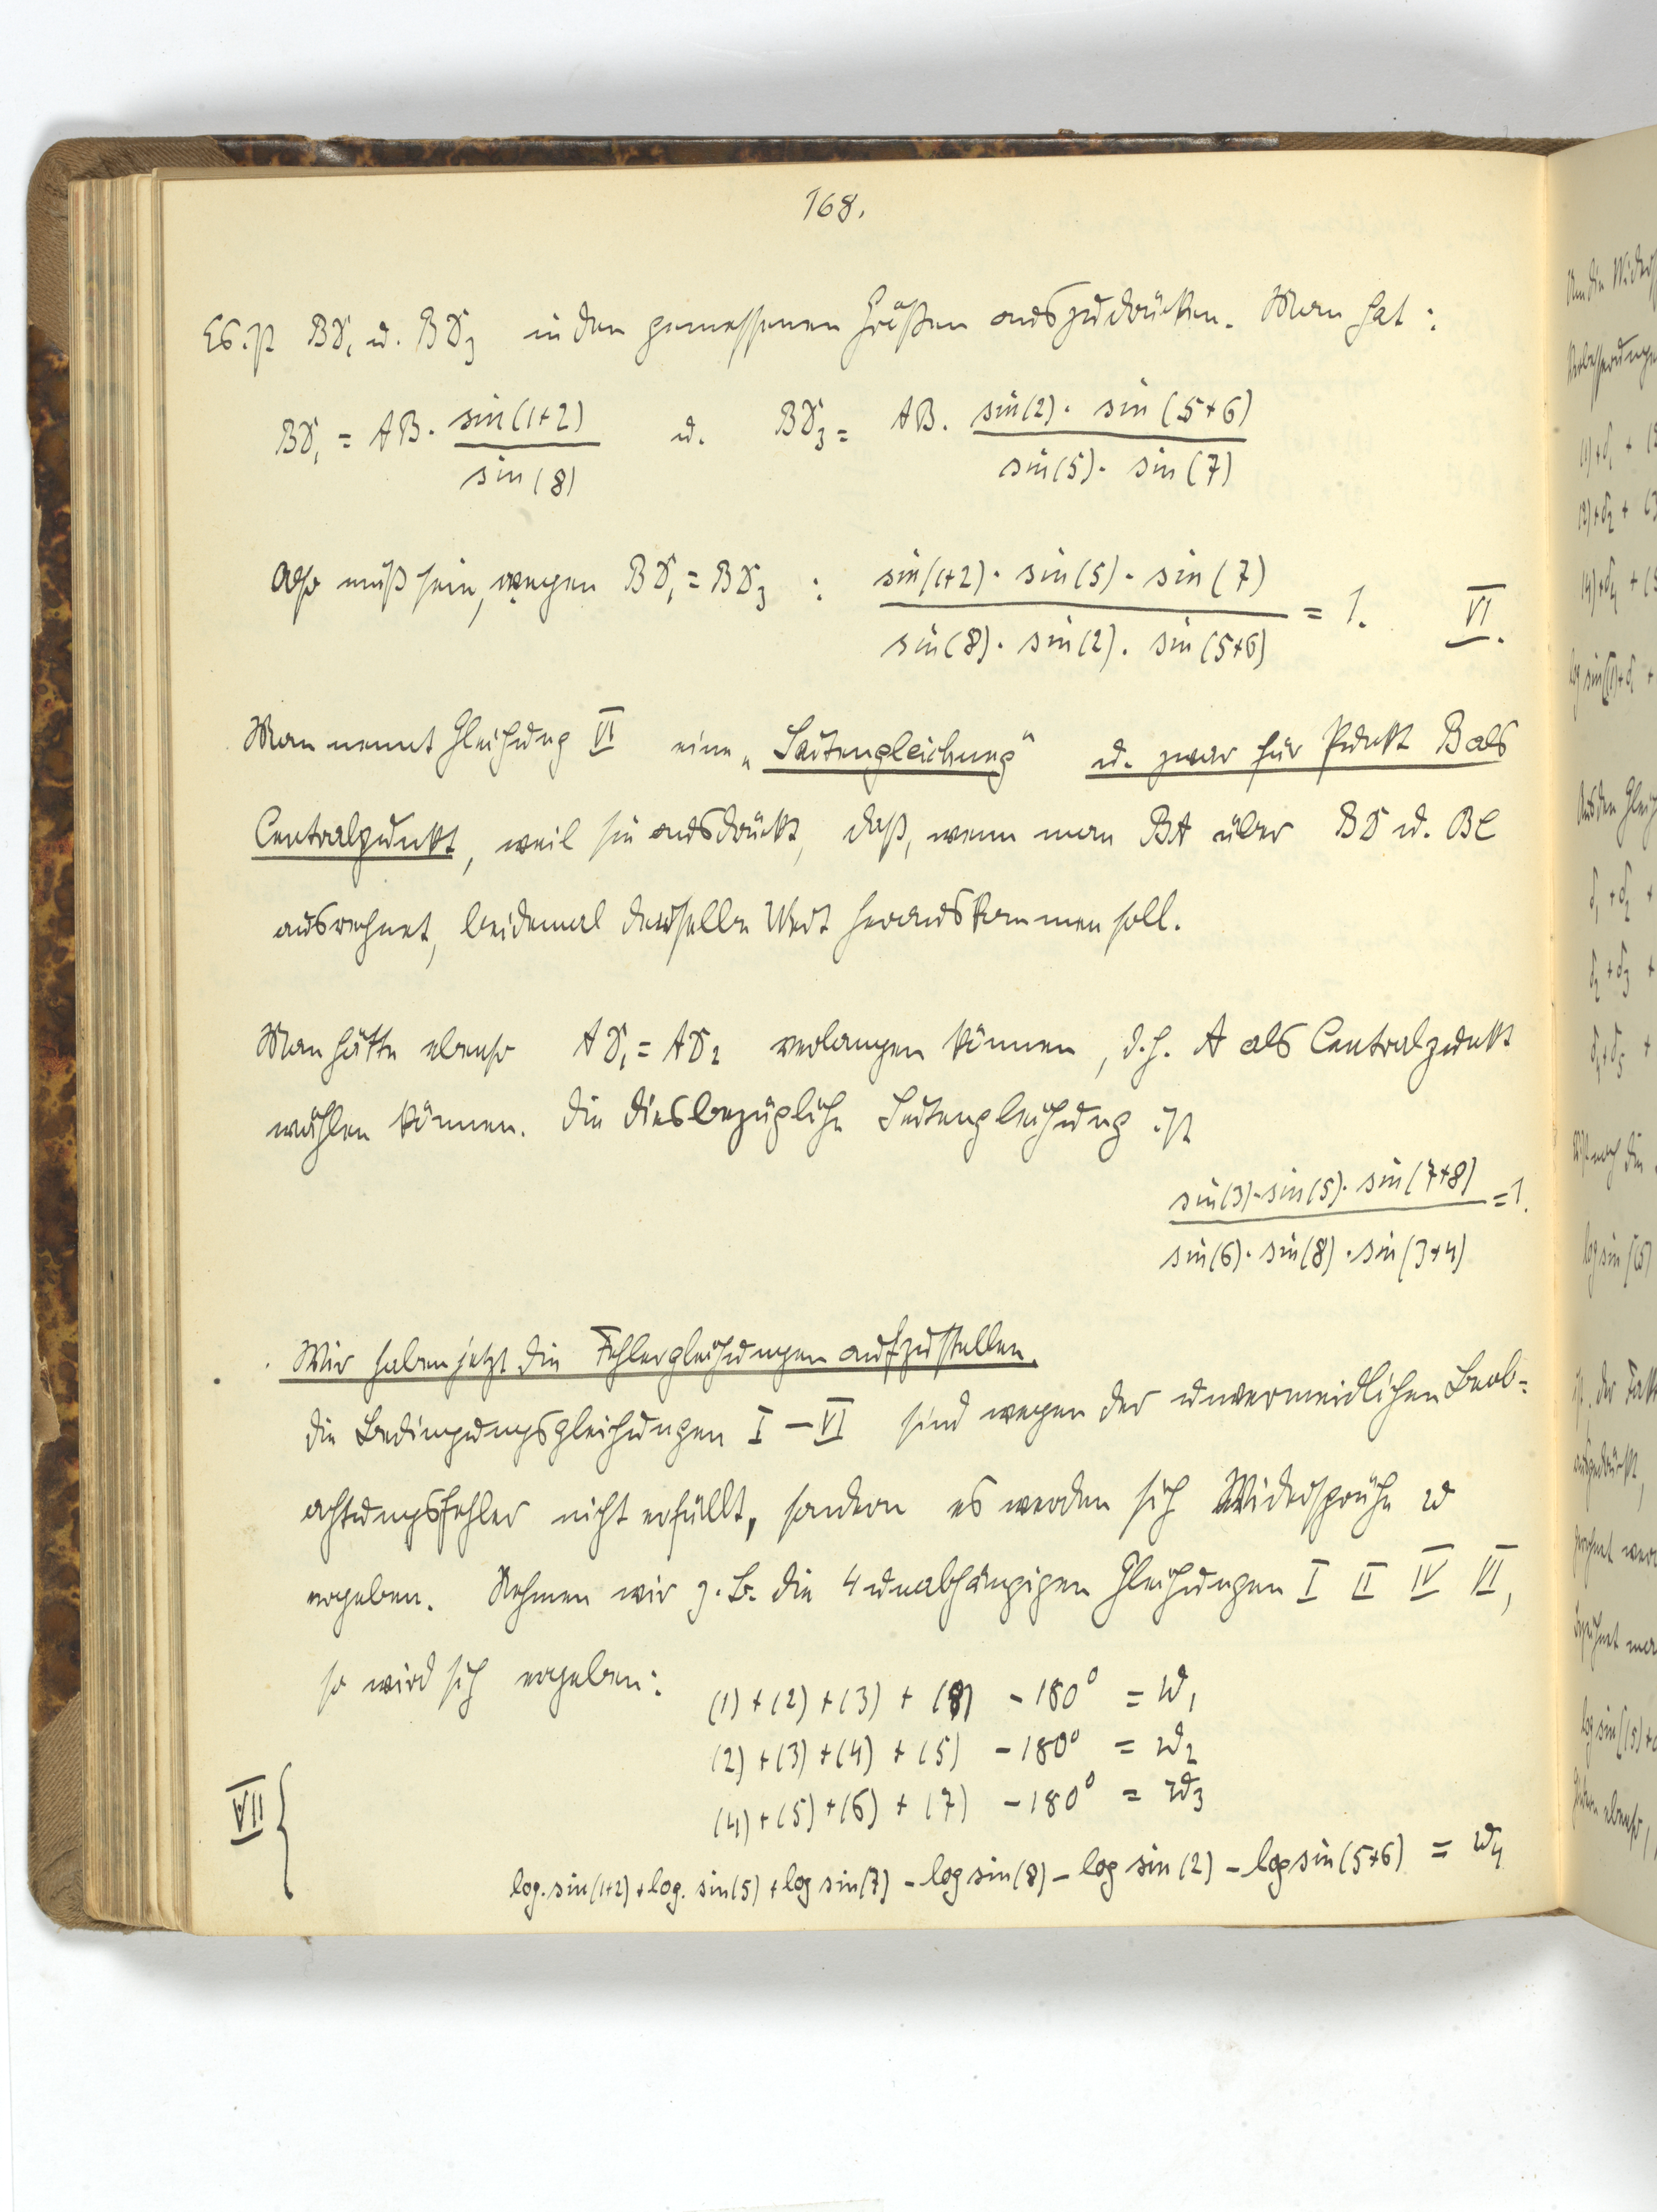 168.
Es ist BD₁ u. BD₃ in den gemessenen Größen auszudrücken. Man hat:
BD₁ = AB · sin(1+2) / sin(8) u. BD₃ = AB · sin(2) · sin(5+6) / sin(5) · sin(7)
Also muß sein, wegen BD₁ = BD₃ : sin(1+2) · sin(5) · sin(7) / sin(8) · sin(2) · sin(5+6) = 1. VI.
Man nennt Gleichung VI eine „Seitengleichung“ u. zwar für Punkt B als
Centralpunkt, weil sie ausdrückt, daß, wenn man BA über BD u. BC
ausrechnet, beidemal derselbe Wert herauskommen soll.
Man hätte ebenso AD₁ = AD₂ verlangen können, d.h. A als Centralpunkt
wählen können. Die diesbezügliche Seitengleichung ist
sin(3) · sin(5) · sin(7+8) / sin(6) · sin(8) · sin(3+4) = 1.
Wir haben jetzt die Fehlergleichungen aufzustellen.
Die Bedingungsgleichungen I – VI sind wegen der unvermeidlichen Beob=
achtungsfehler nicht erfüllt, sondern es werden sich Widersprüche w
ergeben. Nehmen wir z. B. die 4 unabhängigen Gleichungen I II IV VI,
so wird sich ergeben:
(1) + (2) + (3) + (8) – 180° = w₁
(2) + (3) + (4) + (5) – 180° = w₂
VII { (4) + (5) + (6) + (7) – 180° = w₃
log. sin(1+2) + log. sin(5) + log sin(7) – log sin(8) – log sin(2) – log sin(5+6) = w₄